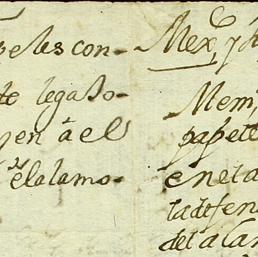 eles con-
te legaso-
yen à el
elalamo-
Mexo, y
Mem
papele
enela
la defen
del alam